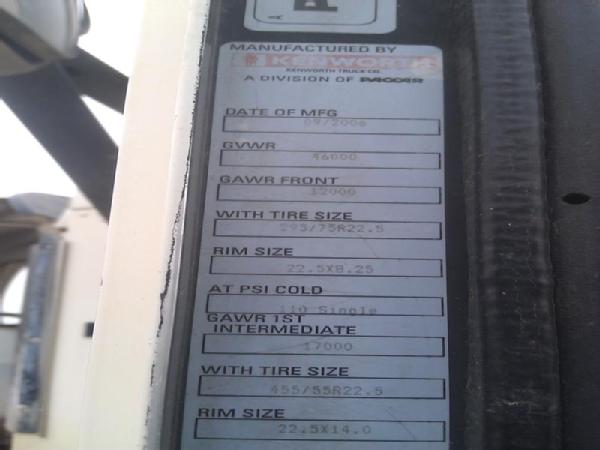 A
A
MANUFACTURED BY
KENWORTH
KENWORTH TRUCK CO.
A DIVISION OF PACCAR
DATE OF MFG
09/2006
GVWR
46000
GAWR FRONT
12000
WITH TIRE SIZE
295/75R22.5
RIM SIZE
22.5X8.25
AT PSI COLD
110 Single
GAWR 1ST
INTERMEDIATE
17000
WITH TIRE SIZE
455/55R22.5
RIM SIZE
22.5X14.0